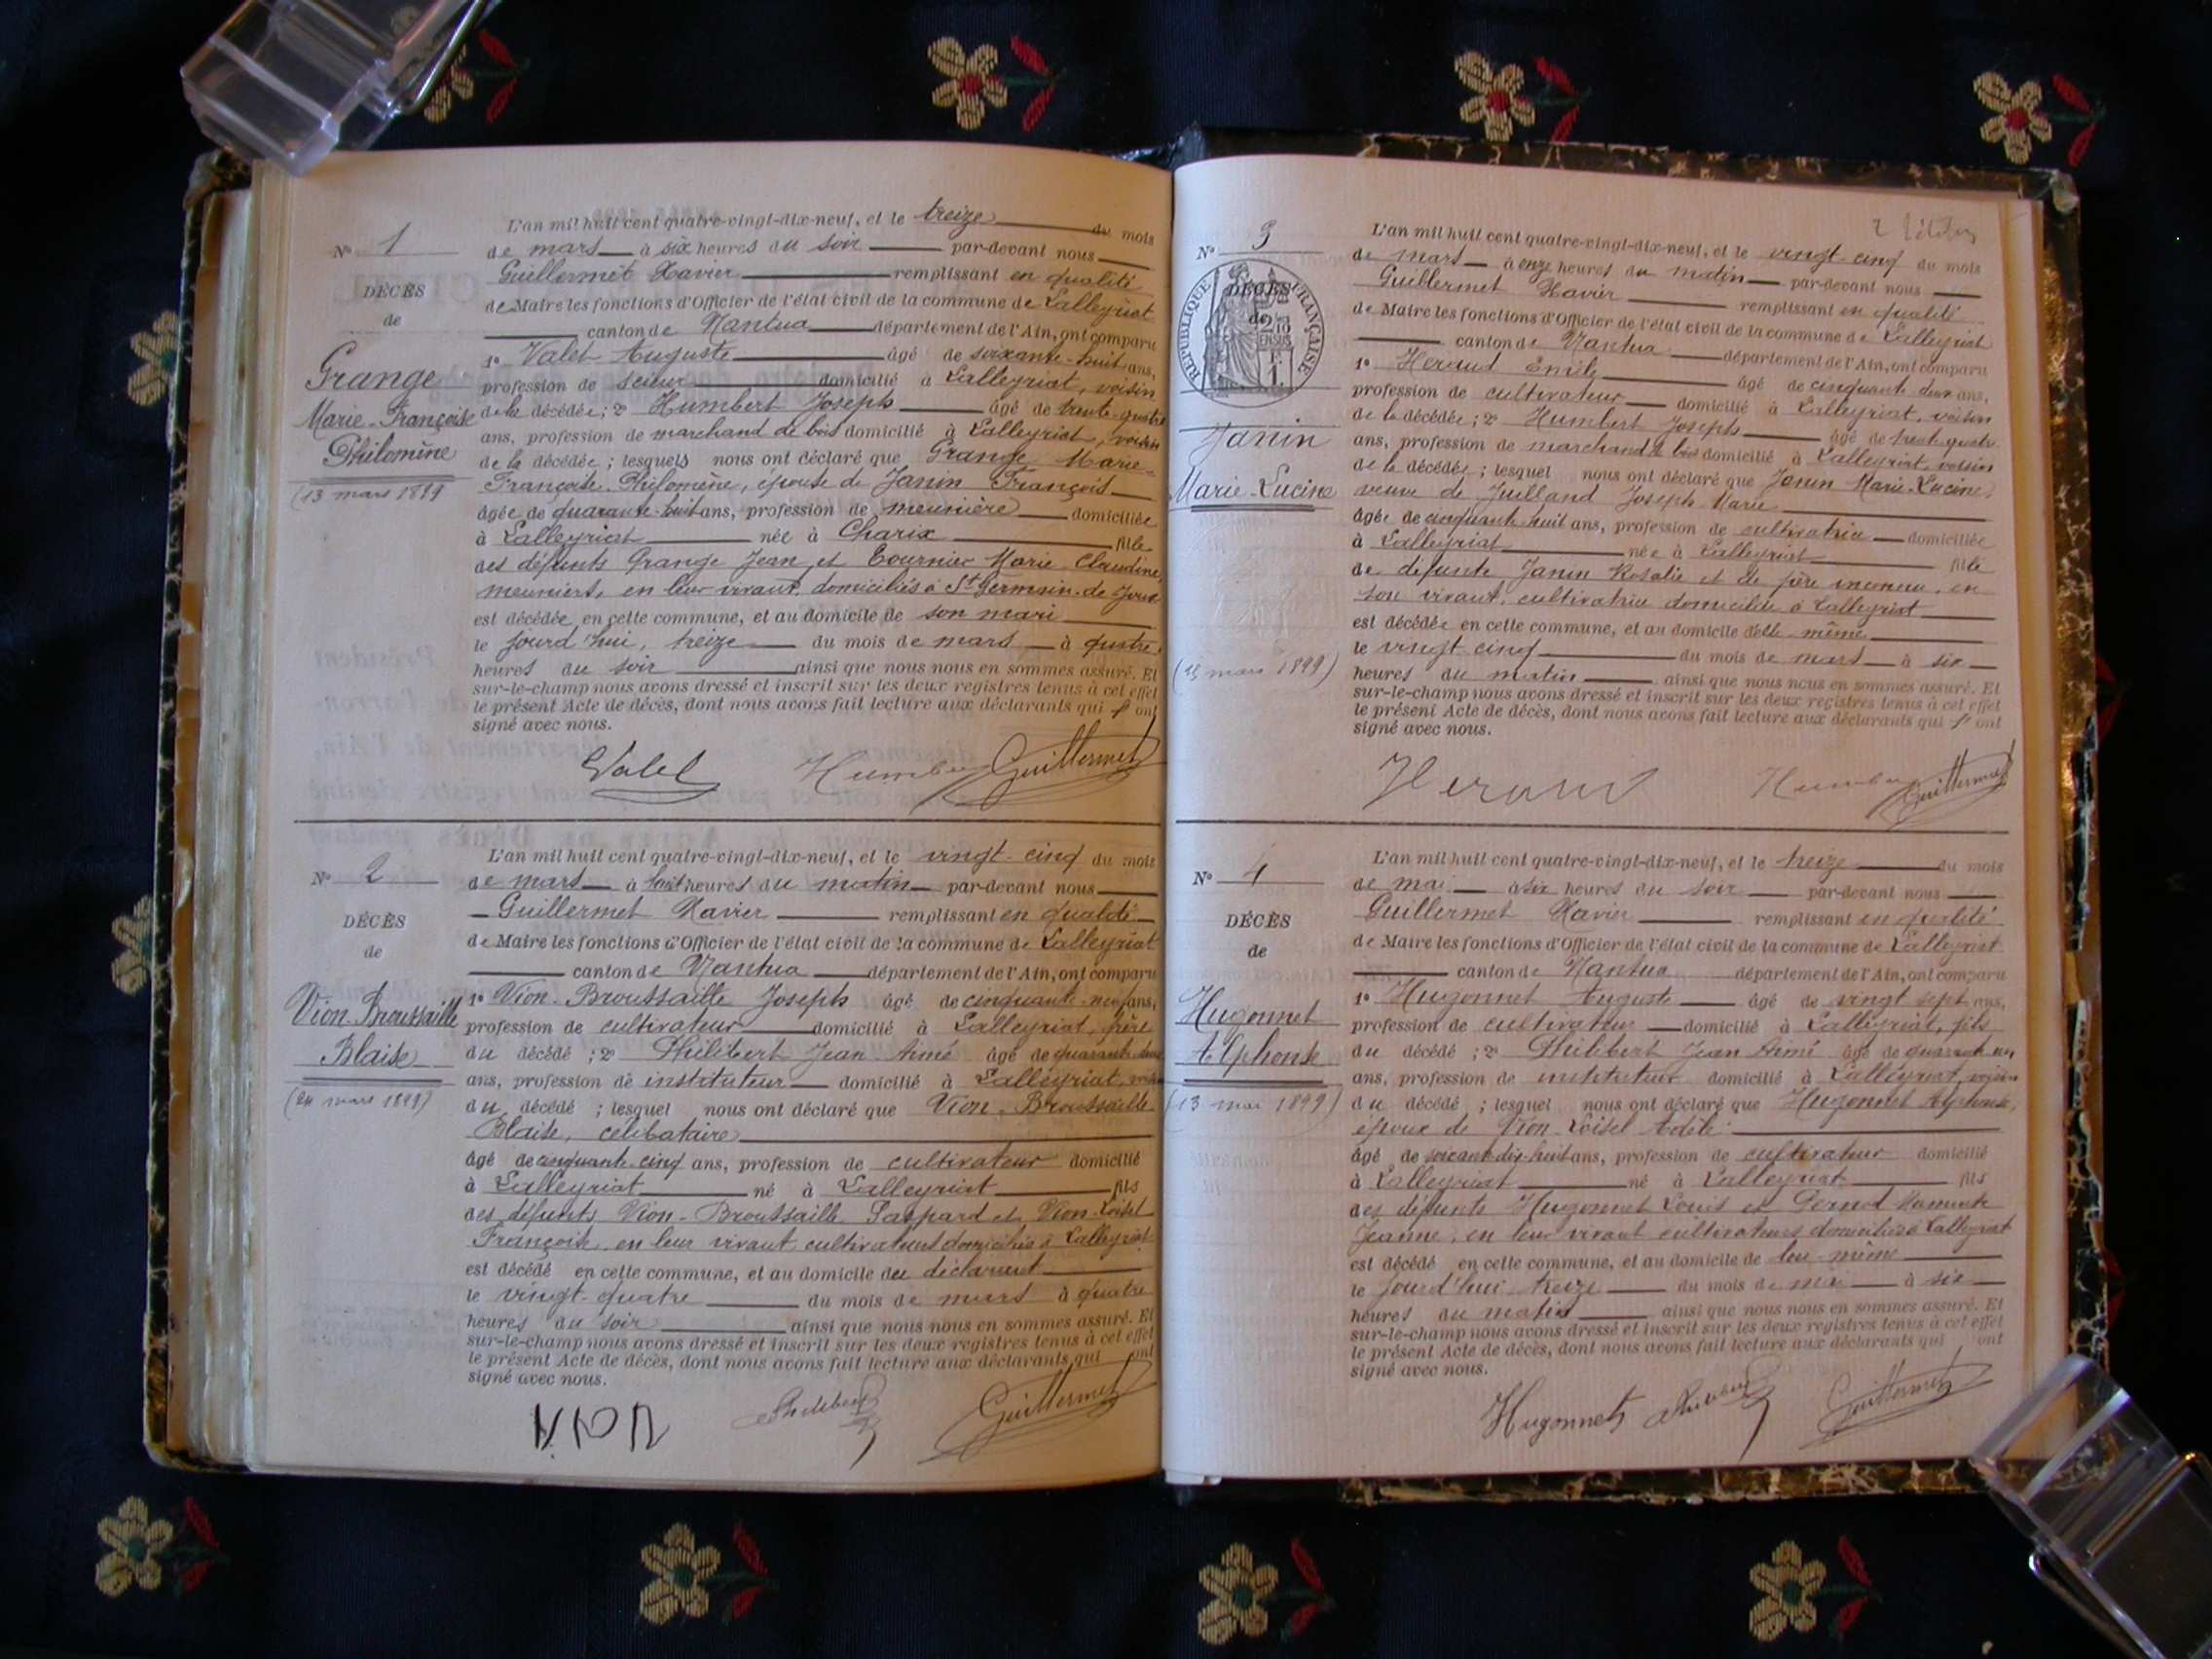 N° 1
DÉCÈS
de
Grange
Marie-Françoise
Philomène
(13 mars 1899
L'an mil huit cent quatre-vingt-dix-neuf, et le treize du mois
de mars à six heures du soir par-devant nous
Guillermet Xavier remplissant en qualité
de Maire les fonctions d'Officier de l'état civil de la commune de Lalleyriat
canton de Nantua département de l'Ain, ont comparu
1° Valet Auguste âgé de soixante-huit ans,
profession de scieur domicilié à Lalleyriat, voisin
de la décédée; 2° Humbert Joseph âgé de trente-quatre
ans, profession de marchand de bois domicilié à Lalleyriat, voisin
de la décédée; lesquels nous ont déclaré que Grange Marie-
Françoise-Philomène, épouse de Janin François
âgée de quarante-huit ans, profession de meunière domiciliée
à Lalleyriat née à Charix fille
des défunts Grange Jean et Tournier Marie-Claudine,
meuniers, en leur vivant domiciliés à St Germain-de-Joux
est décédée en cette commune, et au domicile de son mari
le jourd'hui, treize du mois de mars à quatre
heures du soir ainsi que nous nous en sommes assuré. Et
sur-le-champ nous avons dressé et inscrit sur les deux registres tenus à cet effet
le présent Acte de décès, dont nous avons fait lecture aux déclarants qui ont
signé avec nous.
Valet Humbert Guillermet
N° 2
DÉCÈS
de
Vion-Broussaille
Blaise
(24 mars 1899)
L'an mil huit cent quatre-vingt-dix-neuf, et le vingt-cinq du mois
de mars à huit heures du matin par-devant nous
Guillermet Xavier remplissant en qualité
de Maire les fonctions d'Officier de l'état civil de la commune de Lalleyriat
canton de Nantua département de l'Ain, ont comparu
1° Vion-Broussaille Joseph âgé de cinquante-neuf ans,
profession de cultivateur domicilié à Lalleyriat, frère
du décédé; 2° Philibert Jean Aimé âgé de quarante
ans, profession de instituteur domicilié à Lalleyriat, voisin
du décédé; lesquel nous ont déclaré que Vion-Broussaille
Blaise, celibataire
âgé de cinquante-cinq ans, profession de cultivateur domicilié
à Lalleyriat né à Lalleyriat fils
des défunts Vion-Broussaille Gaspard et Vion-Loisel
Françoise, en leur vivant cultivateurs domiciliés à Lalleyriat
est décédé en cette commune, et au domicile du déclarant
le vingt-quatre du mois de mars à quatre
heures du soir ainsi que nous nous en sommes assuré. Et
sur-le-champ nous avons dressé et inscrit sur les deux registres tenus à cet effet
le présent Acte de décès, dont nous avons fait lecture aux déclarants qui ont
signé avec nous.
Vion Philibert Guillermet
N° 3
RÉPUBLIQUE FRANÇAISE
DÉCÈS
de
2/10
EN SUS
F.
1.
Janin
Marie-Lucine
(25 mars 1899)
L'an mil huit cent quatre-vingt-dix-neuf, et le vingt-cinq du mois
de mars à onze heures du matin par-devant nous
Guillermet Xavier remplissant en qualité
de Maire les fonctions d'Officier de l'état civil de la commune de Lalleyriat
canton de Nantua département de l'Ain, ont comparu
1° Heraud Emile âgé de cinquante deux ans,
profession de cultivateur domicilié à Lalleyriat, voisin
de la décédée; 2° Humbert Joseph âgé de trente-quatre
ans, profession de marchand de bois domicilié à Lalleyriat, voisin
de la décédée; lesquel nous ont déclaré que Janin Marie-Lucine,
veuve de Juilland Joseph-Marie
âgée de cinquante-huit ans, profession de cultivatrice domiciliée
à Lalleyriat née à Lalleyriat fille
de défunte Janin Rosalie et de père inconnu, en
son vivant, cultivatrice domiciliée à Lalleyriat
est décédée en cette commune, et au domicile d'elle-même
le vingt cinq du mois de mars à six
heures du matin ainsi que nous nous en sommes assuré. Et
sur-le-champ nous avons dressé et inscrit sur les deux registres tenus à cet effet
le présent Acte de décès, dont nous avons fait lecture aux déclarants qui ont
signé avec nous.
Heraud Humbert Guillermet
N° 4
DÉCÈS
de
Hugonnet
Alphonse
(13 mai 1899)
L'an mil huit cent quatre-vingt-dix-neuf, et le treize du mois
de mai à six heures du soir par-devant nous
Guillermet Xavier remplissant en qualité
de Maire les fonctions d'Officier de l'état civil de la commune de Lalleyriat
canton de Nantua département de l'Ain, ont comparu
1° Hugonnet Auguste âgé de vingt sept ans,
profession de cultivateur domicilié à Lalleyriat, fils
du décédé; 2° Philibert Jean Aimé âgé de quarante-un
ans, profession de instituteur domicilié à Lalleyriat, voisin
du décédé; lesquel nous ont déclaré que Hugonnet Alphonse,
époux de Vion-Loisel Adèle
âgé de soixante-dix-huit ans, profession de cultivateur domicilié
à Lalleyriat né à Lalleyriat fils
des défunts Hugonnet Louis et
Jeanne, en leur vivant cultivateurs domiciliés à Lalleyriat
est décédé en cette commune, et au domicile de lui-même
le jourd'hui treize du mois de mai à six
heures du matin ainsi que nous nous en sommes assuré. Et
sur-le-champ nous avons dressé et inscrit sur les deux registres tenus à cet effet
le présent Acte de décès, dont nous avons fait lecture aux déclarants qui ont
signé avec nous.
Hugonnet Philibert Guillermet